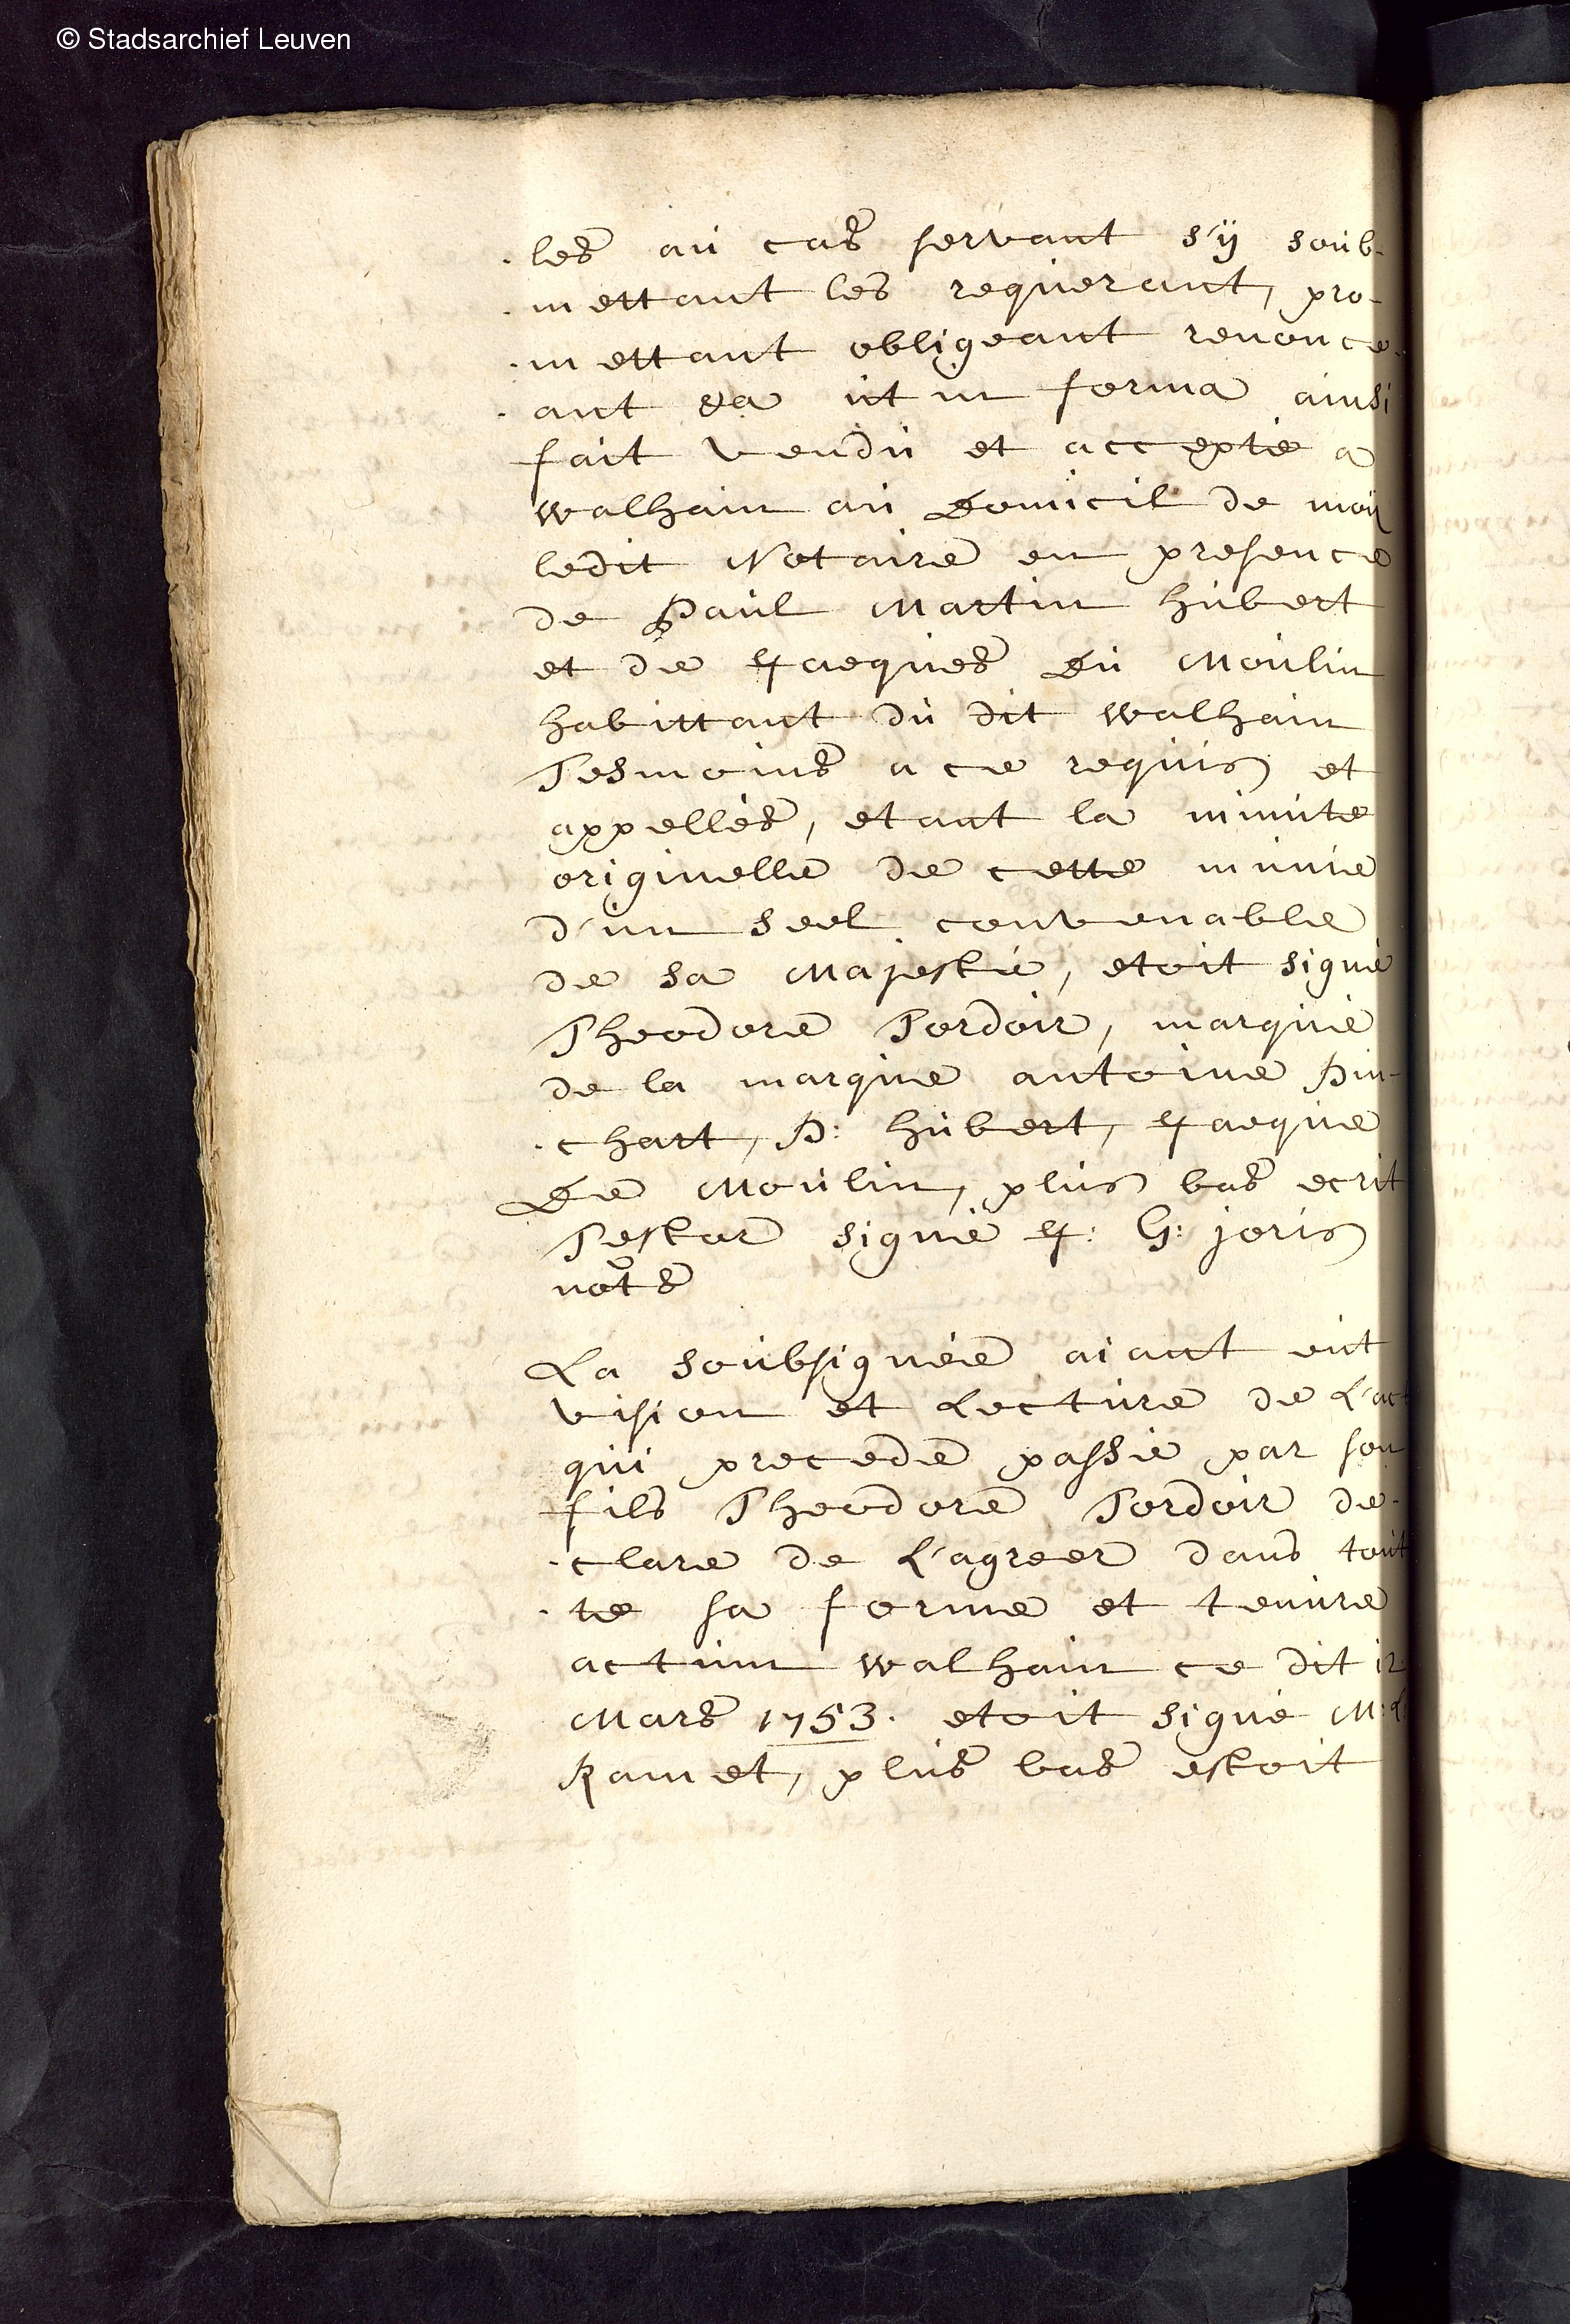 © Stadsarchief Leuven
les au cas servant s'ÿ soub-
mettant les requerant, pro-
mettant obligeant renonce-
ant &a ut in forma ainsi
fait vendu et accepté a
walhain au Domicil de moÿ
ledit Notaire en presence
de Paul Martin hubert
et de Jacques Du Moulin
habittant du dit walhain
Tesmoins a ce requis et
appellés, etant la minute
originelle de cette munie
d'un seel convenable
de sa Majesté, etoit signé
Theodore Tordoir, marquè
de la marque antoine Pin-
chart, P: hubert, Jacque
De Moulin, plus bas ecrit
Testor signé J: G: joris
nots
La soubsignée aiant eut
vision et Lecture de L'act
qui precede passé par son
fils Theodore Tordoir de-
clare de L'agreer dans tout
te sa forme et tenure
actum walhain ce dit 12
Mars 1753. etoit signé M:
Ramet, plus bas estoit